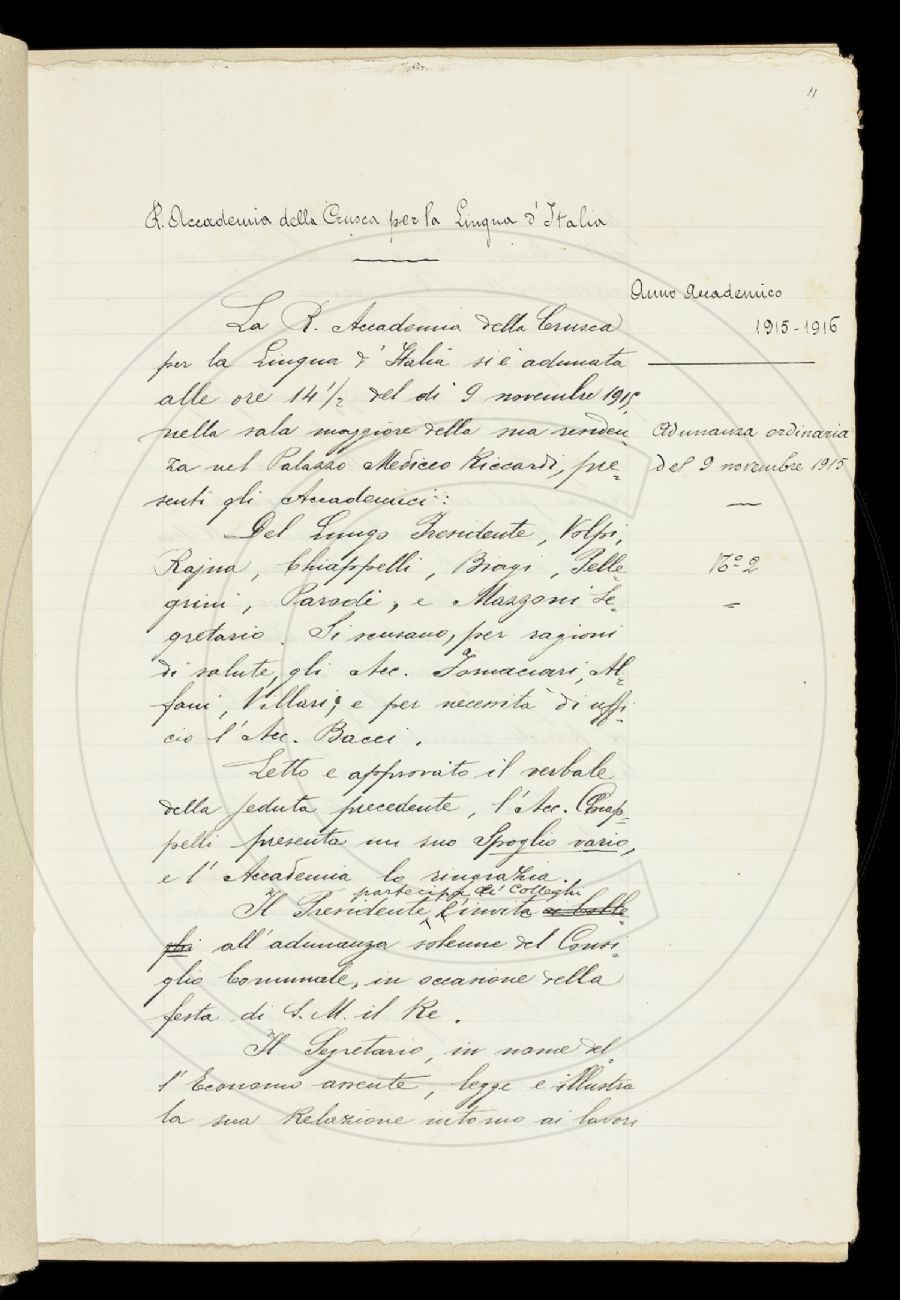 11
R. Accademia della Crusca per la Lingua d'Italia
Anno Accademico
1915-1916
Adunanza ordinaria
del 9 novembre 1915
Nº 2
La R. Accademia della Crusca
per la Lingua d'Italia si è adunata
alle ore 14 1/2 del dì 9 novembre 1915,
nella sala maggiore della sua residen
za nel Palazzo Mediceo Riccardi, pre=
senti gli Accademici:
Del Lungo Presidente, Volpi,
Rajna, Chiappelli, Biagi, Pelle=
grini, Parodi, e Mazzoni Se=
gretario. Si scusano, per ragioni
di salute, gli Acc. Fornaciari, Al=
fani, Villari; e per necessità di uffi=
cio l'Acc. Bacci.
Letto e approvato il verbale
della seduta precedente, l'Acc. Chiap=
pelli presenta un suo Spoglio vario,
e l'Accademia lo ringrazia.
partecipa ai Colleghi
Il Presidente l'invito ai Colle
ghi all'adunanza solenne del Consi=
glio Comunale, in occasione della
festa di S. M. il Re.
Il Segretario, in nome del=
l'Economo assente, legge e illustra
la sua Relazione intorno ai lavori